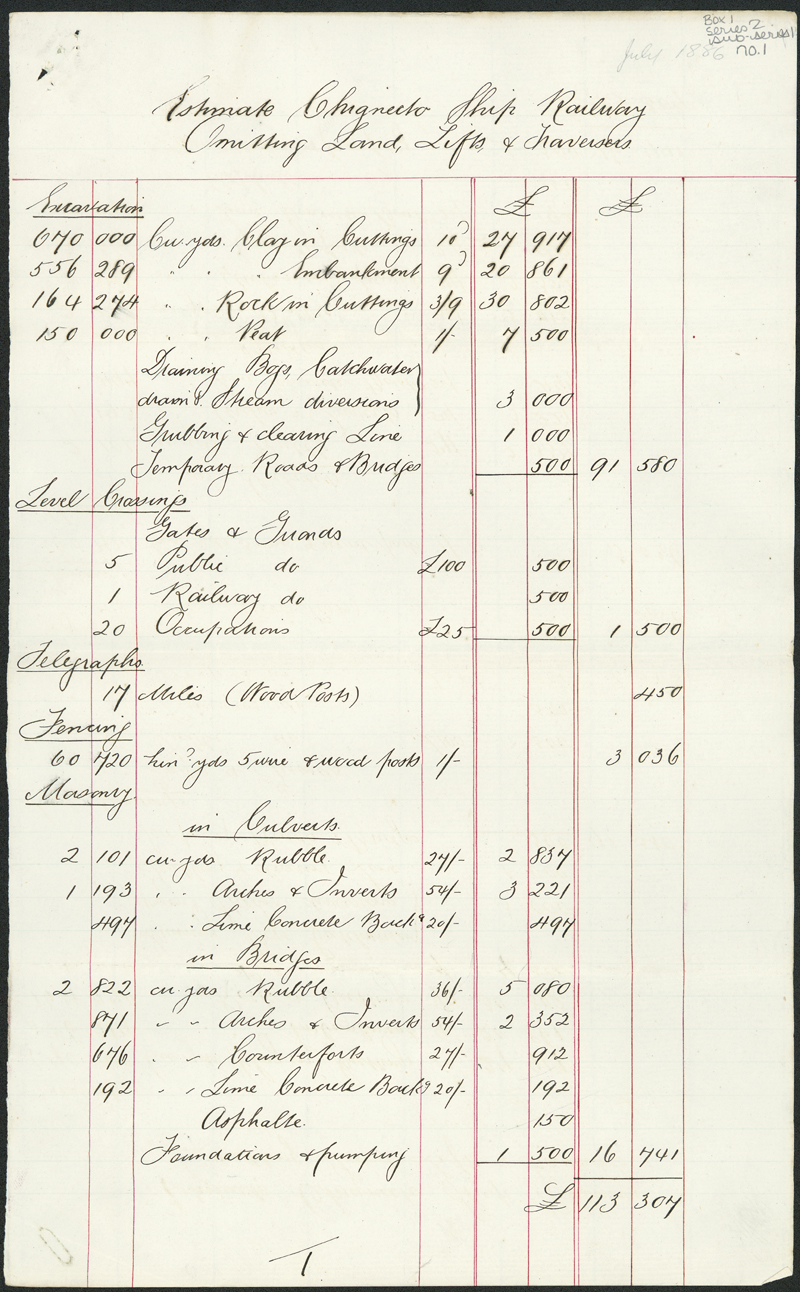 Box 1
Series 2
sub-series 1
no. 1
July 1886
Estimate Chignecto Ship Railway
Omitting Land, Lifts, & Traversers
£ £
Excavation
670 000 Cu. yds. Clay in Cuttings 10d 27 917
556 289 " " " Embankment 9d 20 861
164 274 " " Rock in Cuttings 3/9 30 802
150 000 " " Peat 1/- 7 500
Draining Bogs, Catchwater
drains & Stream diversions 3 000
Grubbing & clearing Line 1 000
Temporary Roads & Bridges 500 91 580
Level Crossings
Gates & Guards
5 Public do £100 500
1 Railway do 500
20 Occupations £25 500 1 500
Telegraphs
17 Miles (Wood Posts) 450
Fencing
60 720 lin. yds 5 wire & wood posts 1/- 3 036
Masonry
in Culverts
2 101 cu. yds Rubble 27/- 2 837
1 193 " " Arches & Inverts 54/- 3 221
497 " " Lime Concrete Backg 20/- 497
in Bridges
2 822 cu. yds Rubble 36/- 5 080
871 " " Arches & Inverts 54/- 2 352
676 " " Counterforts 27/- 912
192 " " Lime Concrete Backg 20/- 192
Asphalte 150
Foundations & pumping 1 500 16 741
£ 113 307
1